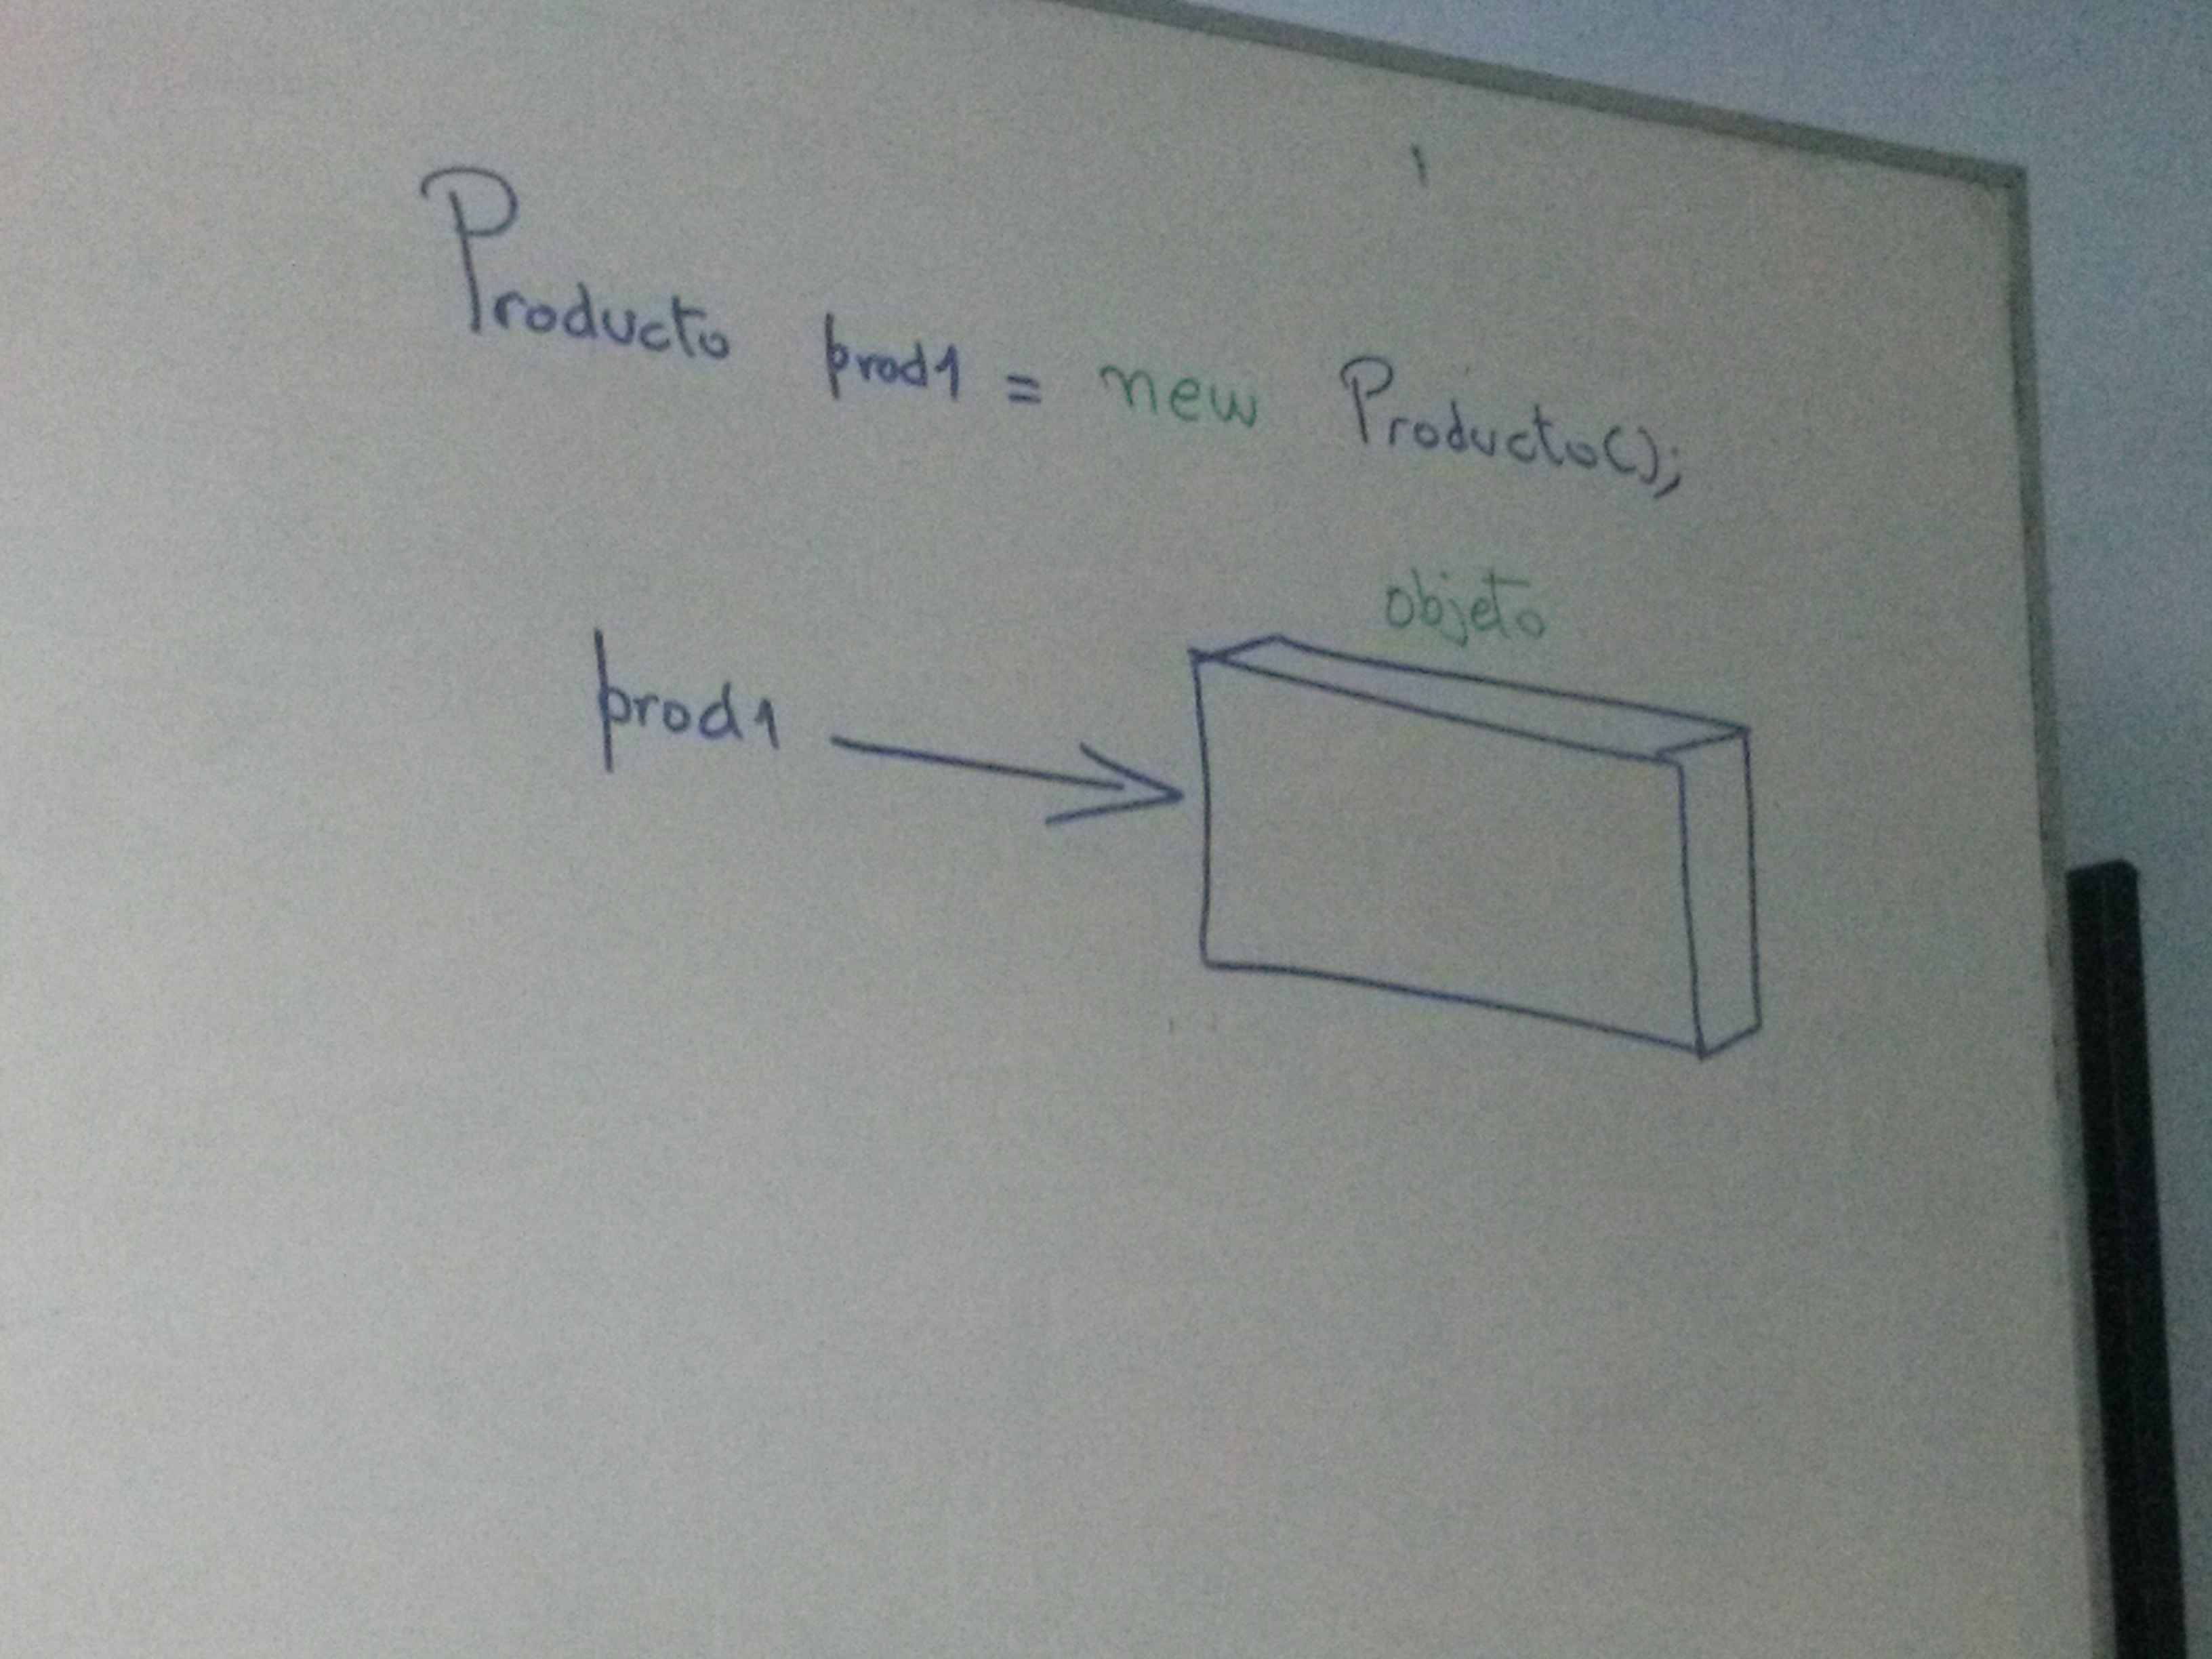 Producto prod1 = new Producto();
objeto
prod1